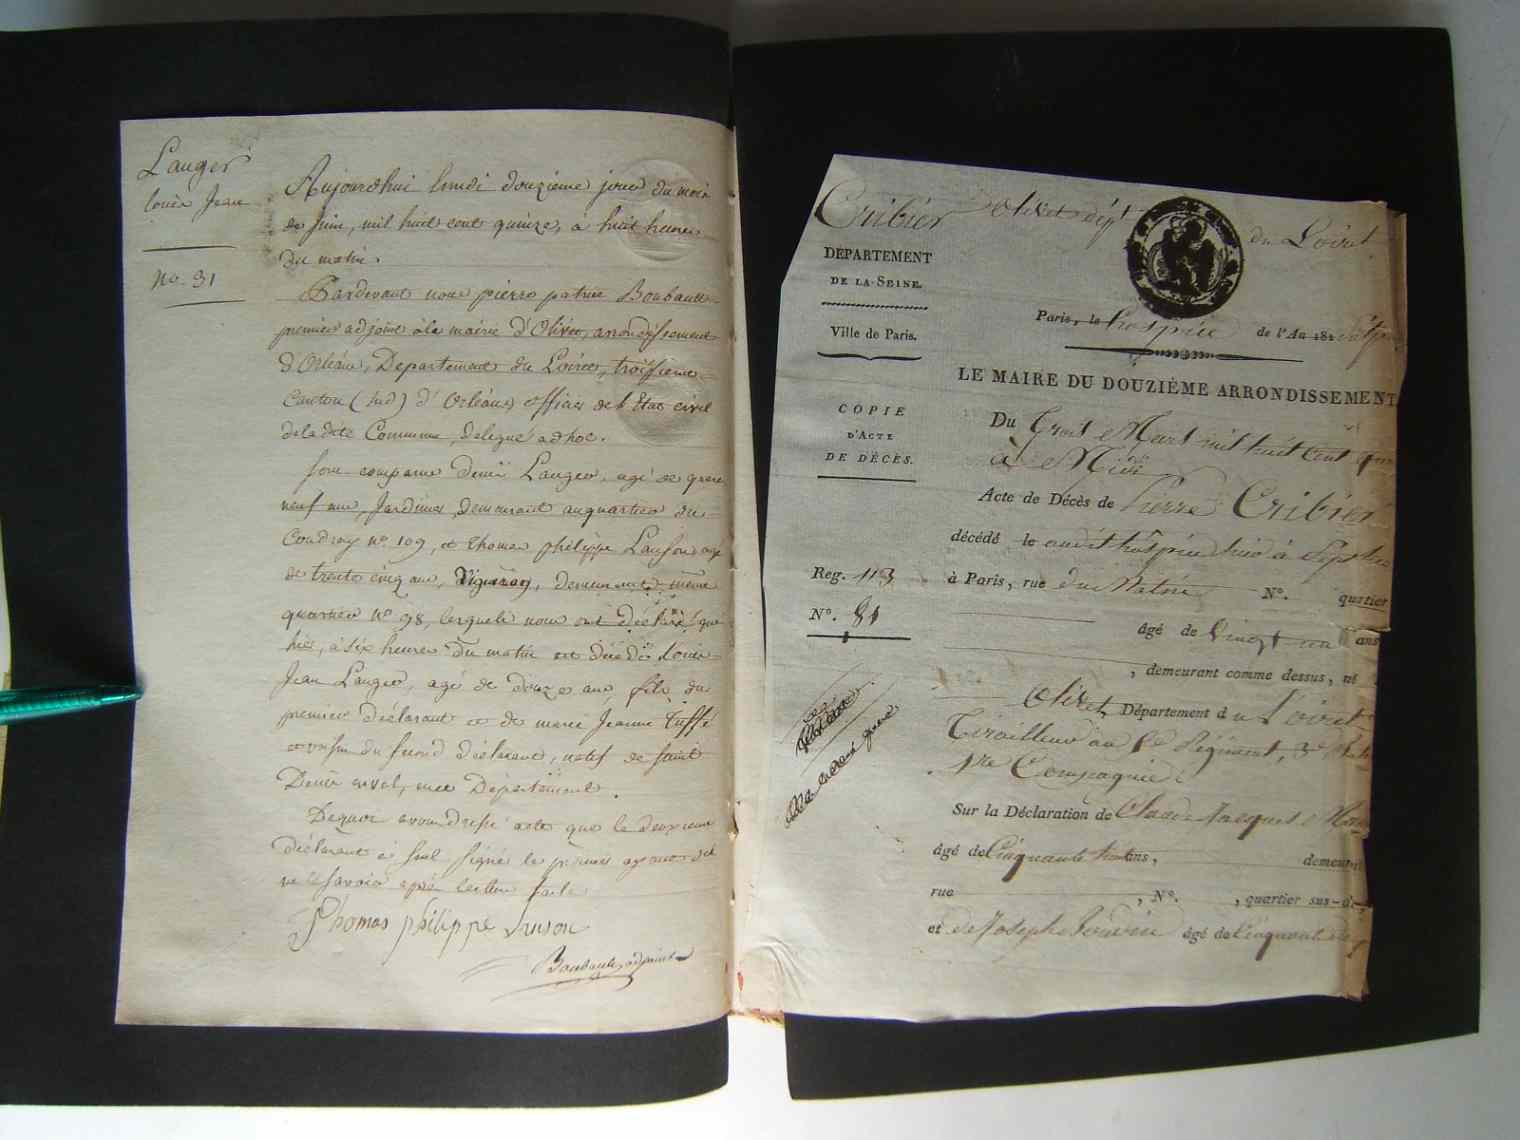 Lauger
Louis Jean
No. 31
Aujourdhui lundi douzieme jour du mois
de juin, mil huit cent quinze, à huit heures
du matin.
Pardevant nous pierre patrice Boubault
premier adjoint à la mairie d'Olivet, arrondissement
d'Orléans, Departement du Loiret, troisieme
Canton (sud) d'Orléans, officier de l'Etat civil
de la dite Commune, delegué adhoc.
Sont comparus denis Lauger, agé de
neuf ans, Jardinier, demeurant au quartier du
Coudray no. 109, et thomas philippe Luison agé
de trente cinq ans, Vigneron, demeurant même
quartier no 98, lesquels nous ont déclaré que
hier, à six heures du matin est décédé Louis
Jean Lauger, agé de douze ans fils du
premier déclarant et de marie Jeanne tuffé
et voisin du second déclarant, natif de saint
Denis en val, meme Departement.
De quoi avons dressé acte que le deuxieme
déclarant a seul signé le premier ayant dit
ne le savoir après lecture faite
Thomas philippe Luison
Boubault, adjoint
Cribier Olivet dépt du Loiret
DÉPARTEMENT
DE LA SEINE.
Ville de Paris.
COPIE
D'ACTE
DE DÉCÈS.
Reg. 113
N°. 81
Paris, le hospice de l'An 181
LE MAIRE DU DOUZIÈME ARRONDISSEMENT
Du Trois Mars mil huit cent
à Midi
Acte de Décès de Pierre Cribier
décédé le audit hospice hier à Sept
à Paris, rue N°. quartier
âgé de Vingt un ans
, demeurant comme dessus, né
Olivet Département du Loiret
Tirailleur au Régiment, 3e
1re Compagnie
Sur la Déclaration de Claude Jacques
âgé de Cinquante ans, demeurant
rue , N°. , quartier sus-d
et de Joseph âgé de Cinquante